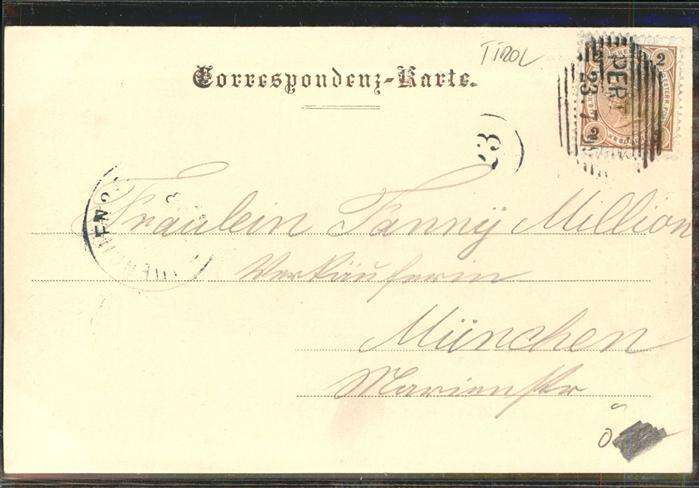 TIROL
Correspondenz-Karte.
2
PER
23 7
2
23
MÜNCHEN 2
Fräulein Fanny Million
Verkäuferin
München
Marienstr
Ö